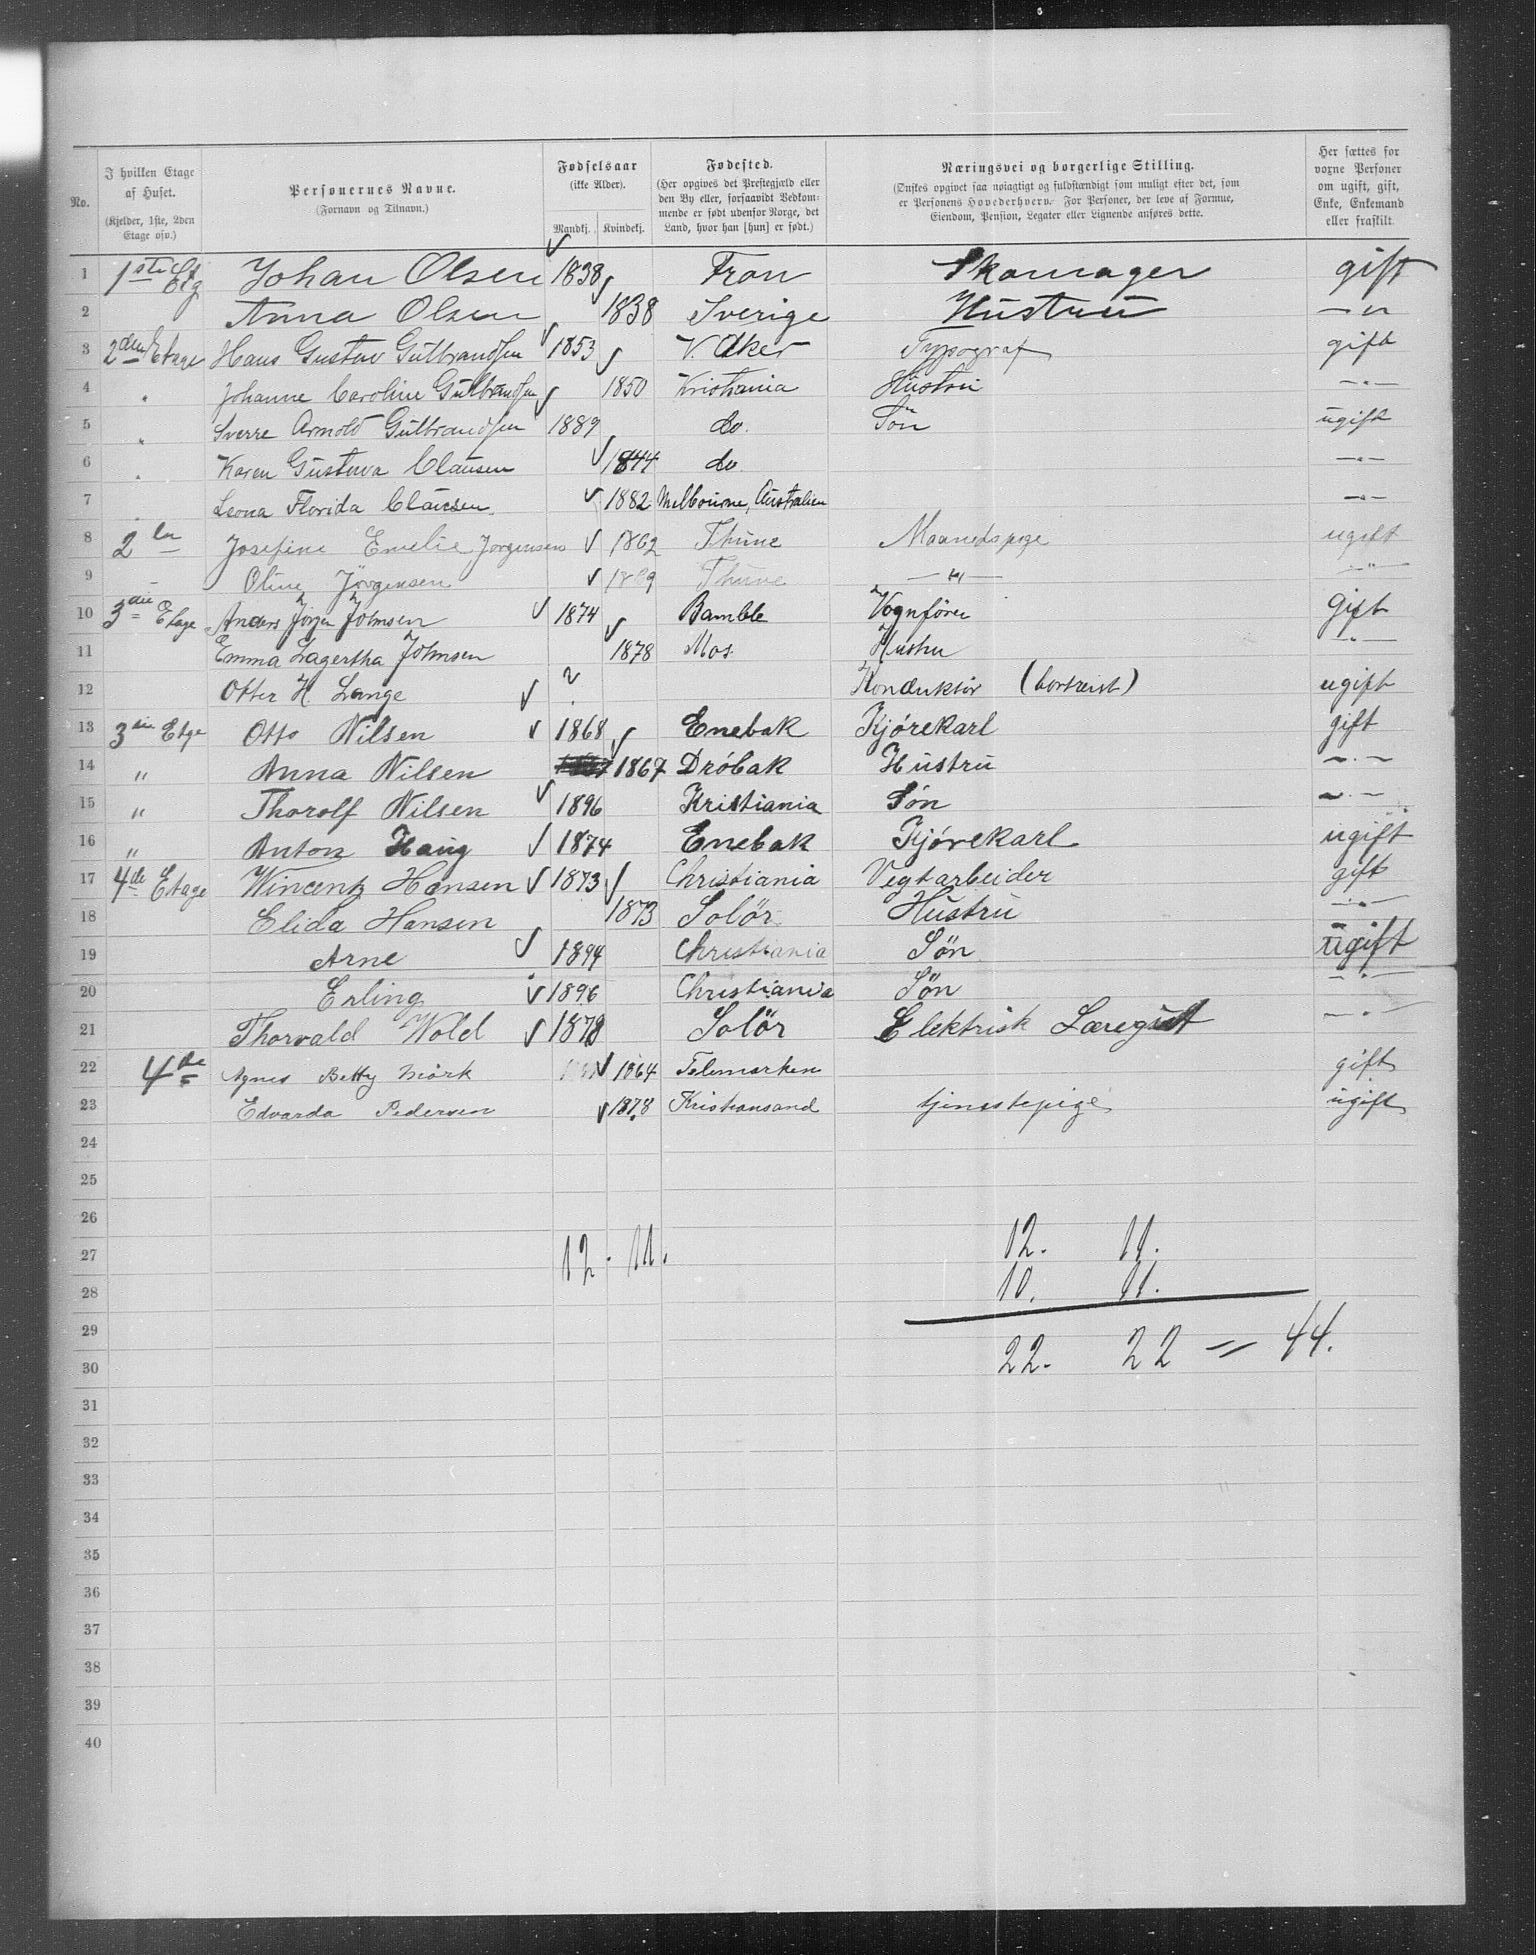 No.
I hvilken Etage af Huset.
(Kjelder, 1ste, 2den Etage osv.)
Personernes Navne.
(Fornavn og Tilnavn.)
Fødselsaar
(ikke Alder).
Mandkj. Kvindekj.
Fødested.
(Her opgives det Prestegjæld eller
den By eller, forsaavidt Vedkom-
mende er født udenfor Norge, det
Land, hvor han [hun] er født.)
Næringsvei og borgerlige Stilling.
(Ønskes opgivet saa nøiagtigt og fuldstændigt som muligt efter det, som
er Personens Hovederhverv. For Personer, der leve af Formue,
Eiendom, Pension, Legater eller Lignende anføres dette.
Her sættes for
vorne Personer
om ugift, gift,
Enke, Enkemand
eller fraskilt.
1 1ste Etg Johan Olsen 1838 Fron Skomager gift
2 Anna Olsen 1838 Sverige Hustru — " —
3 2den Etage Hans Gustav Gulbrandsen 1853 V. Aker Typograf gift
4 " Johanne Caroline Gulbrandsen 1850 Kristiania Hustru — " —
5 " Sverre Arnold Gulbrandsen 1889 do. Søn ugift
6 " Karen Gustava Clausen 1844 do. — " —
7 " Leona Florida Clausen. 1882 Melbourne, Australien — " —
8 2den Josefine Emelie Jorgensen 1862 Thune Maanedspige ugift
9 — Oline Jörgensen 1869 Thune — " — — " —
10 3die Etage Anders Jörgen Johnsen 1874 Bamble Vognfører Gift
11 Emma Lagertha Johnsen 1878 Mos. Hustru — " —
12 Otter H. Lange ? Konduktør (bortreist) ugift
13 3die Etge Otto Nilsen 1868 Enebak Kjørekarl gift
14 " Anna Nilsen 1867 Dróbak Hustru — " —
15 " Thorolf Nilsen 1896 Kristiania Són — " —
16 " Anton Haug 1874 Enebak Kjórekarl ugift
17 4de Etage Wincentz Hansen 1873 Christiania Vegtarbeider gift
18 Elida Hansen 1873 Solör Hustru — " —
19 Arne 1894 Christiania Sön ugift
20 Erling 1896 Christiania Sön — " —
21 Thorvald Wold 1878 Solör Elektrisk — " —
22 4de Agnes Betty Mörk 1864 Telemarken gift
23 Edvarda Pedersen 1878 Kristiansand tjenestepige ugift
24
25
26
27 12. 11. 12. 11.
28 10. 11.
29
30 22. 22 = 44.
31
32
33
34
35
36
37
38
39
40